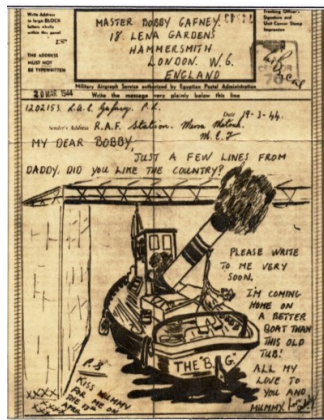 Write Address
in large BLOCK
letters wholly
within this panel
THE ADDRESS
MUST NOT
BE TYPEWRITTEN
MASTER BOBBY GAFNEY.
18 LENA GARDENS
HAMMERSMITH
LONDON. W. 6.
ENGLAND
Franking Officer's
Signature and
Unit Censor Stamp
Impression
20 MAR 1944
Military Airgraph Service authorized by Egyptian Postal Administration
Write the message very plainly below this line
1202153. L.A.C. Gafney. P.L.
Date 19-3-44.
Sender's Address R.A.F. Station. Mersa Matruh.
M.E.F
MY DEAR BOBBY,
JUST A FEW LINES FROM
DADDY. DID YOU LIKE THE COUNTRY?
PLEASE WRITE
TO ME VERY
SOON.
I'M COMING
HOME ON
A BETTER
BOAT THAN
THIS OLD
TUB!
ALL MY
LOVE TO
YOU AND
MUMMY
THE "BIG"
P.S
KISS MUMMY
FOR ME ON
THE
XXXXX